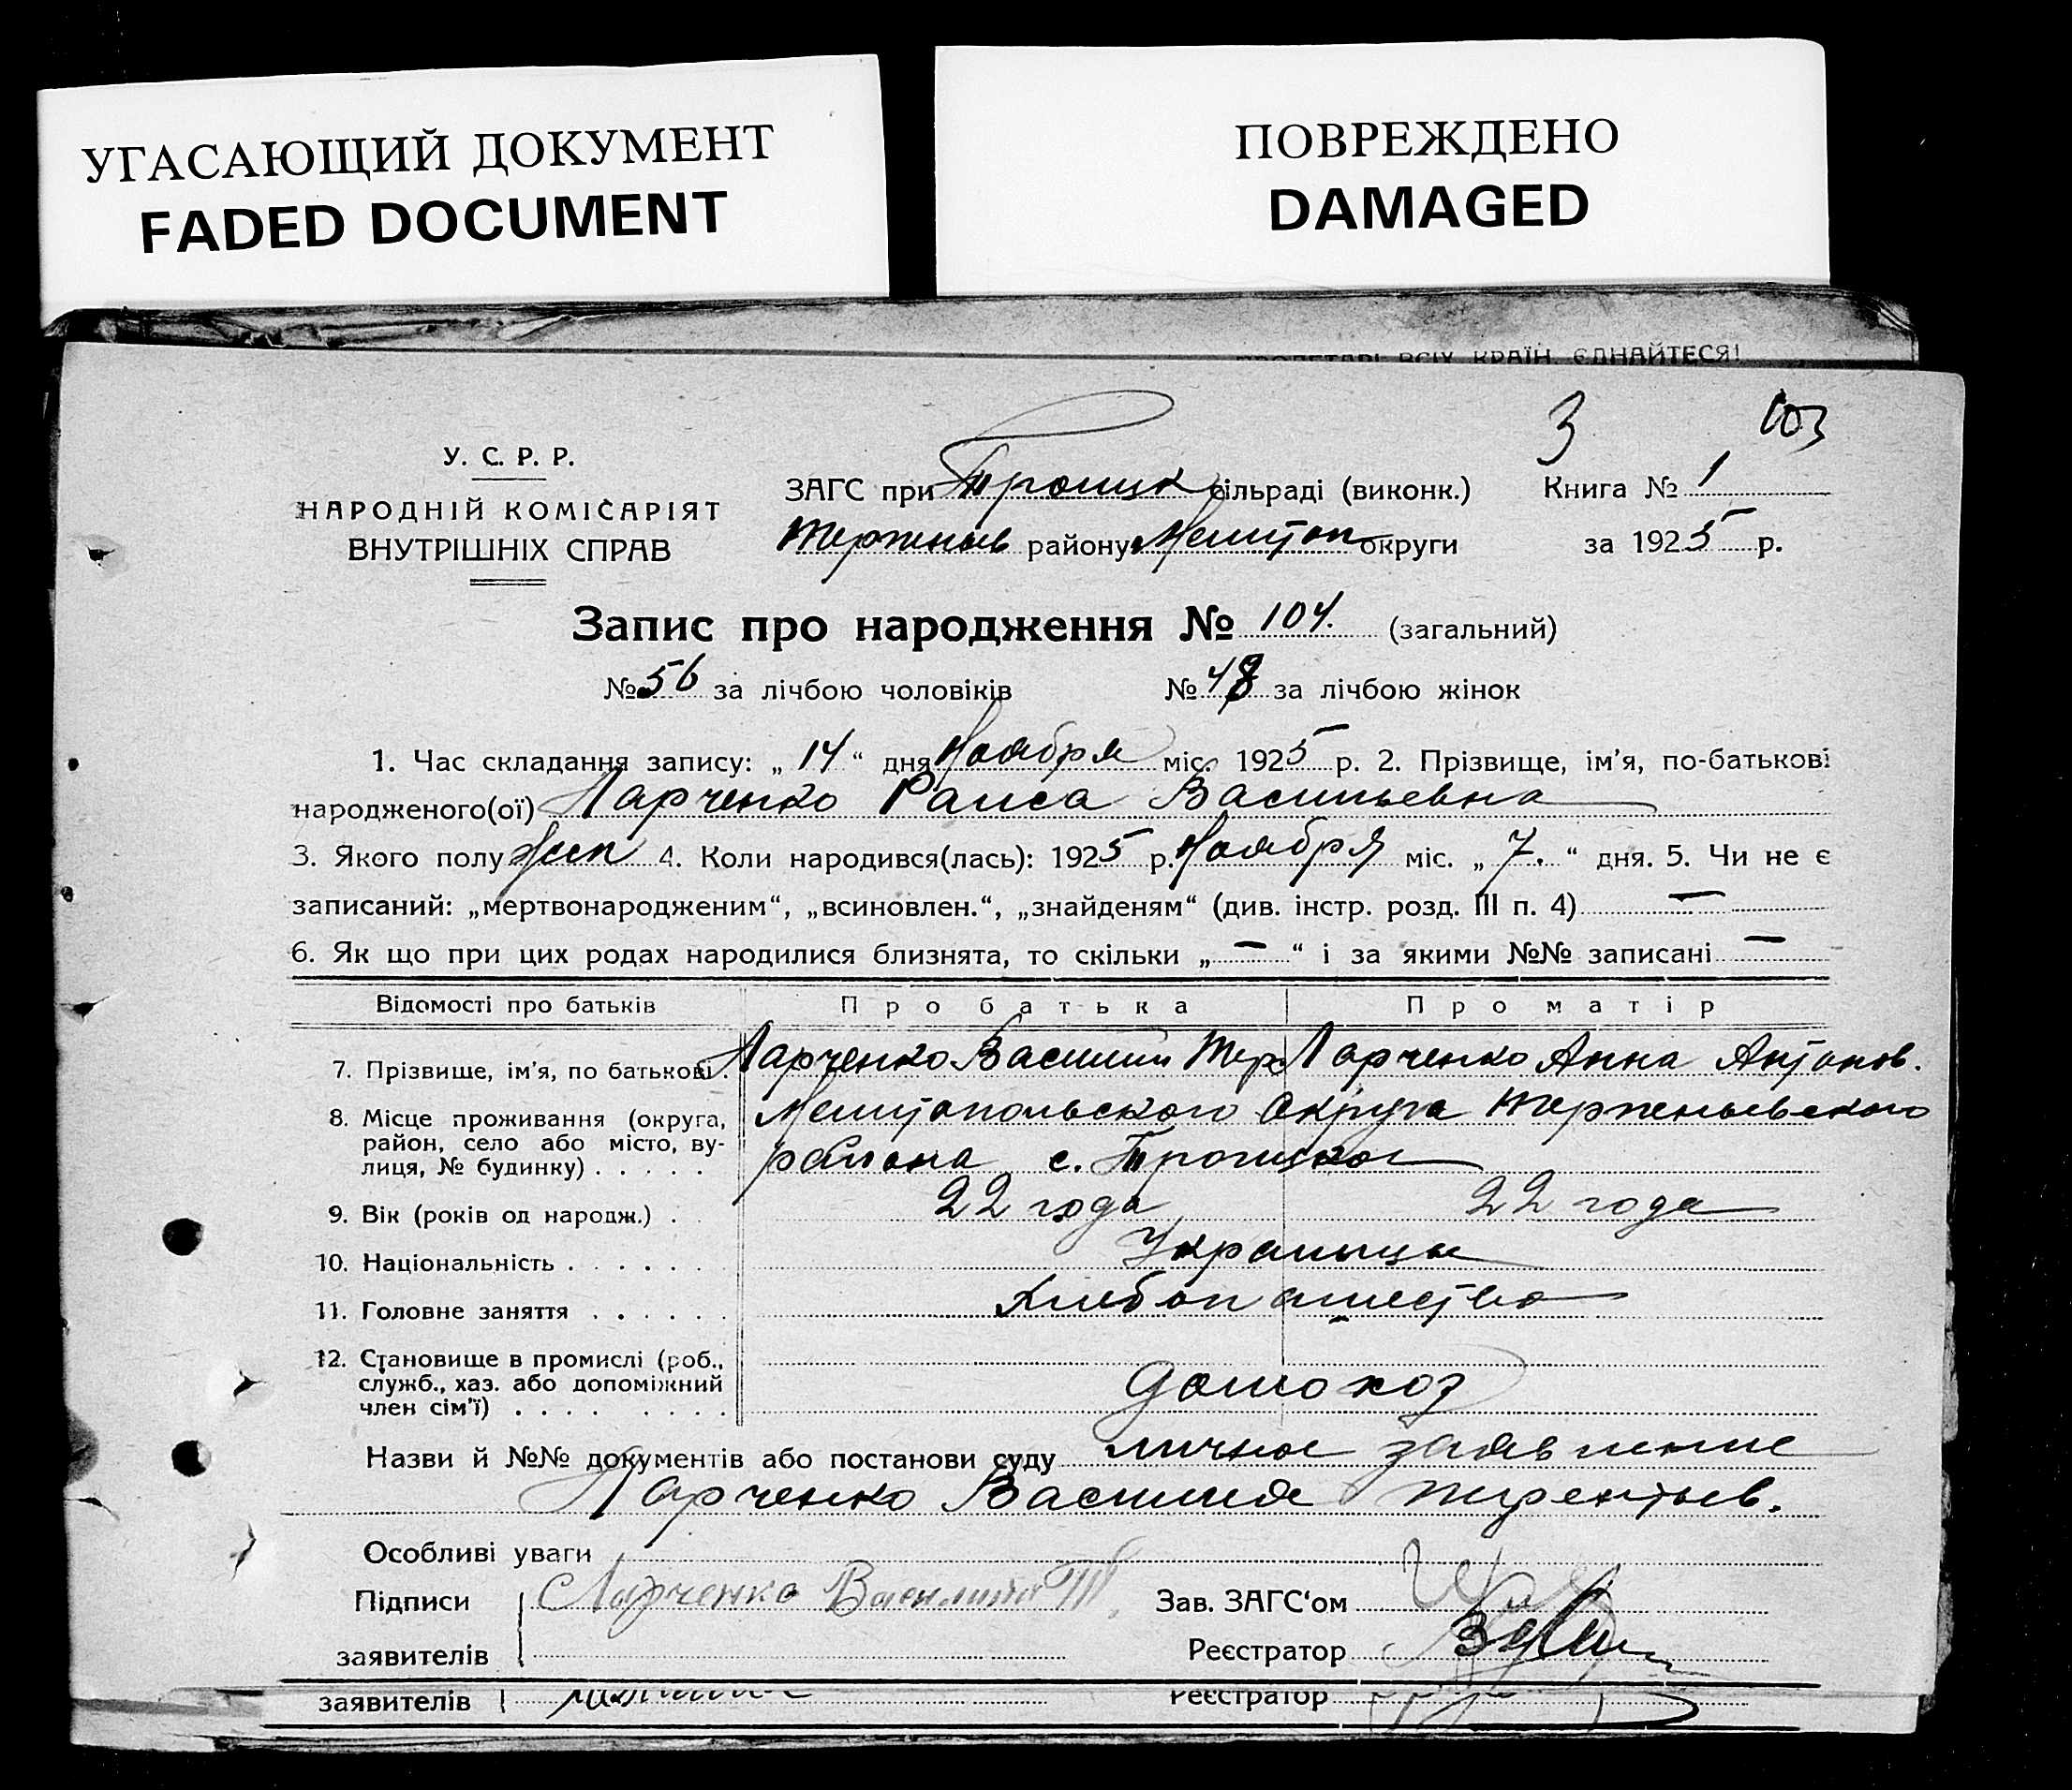 УГАСАЮЩИЙ ДОКУМЕНТ
FADED DOCUMENT
ПОВРЕЖДЕНО
DAMAGED
ПРОЛЕТАРІ ВСІХ КРАЇН, ЄДНАЙТЕСЯ!
3 103
У. С. Р. Р.
НАРОДНІЙ КОМІСАРІЯТ
ВНУТРІШНІХ СПРАВ
ЗАГС при Троицк сільраді (виконк.) Книга № 1
Терпеньев району Мелитоп округи за 1925 р.
Запис про народження № 104. (загальний)
№ 56 за лічбою чоловіків № 48 за лічбою жінок
1. Час складання запису: „ 14 “ дня Ноября міс. 1925 р. 2. Прізвище, ім'я, по-батькові
народженого(ої) Ларченко Раиса Васильевна
3. Якого полу жен 4. Коли народився(лась): 1925 р. Ноября міс. „ 7. “ дня. 5. Чи не є
записаний: „мертвонародженим“, „всиновлен.“, „знайденям“ (див. інстр. розд. III п. 4) —
6. Як що при цих родах народилися близнята, то скільки „ — “ і за якими №№ записані —
Відомості про батьків Про батька Про матір
7. Прізвище, ім'я, по батькові . Ларченко Василий Тер Ларченко Анна Антонов.
8. Місце проживання (округа, район, село або місто, ву- лиця, № будинку) . . . . . Мелитопольского Округа Терпеньевского
района с. Троицкое
9. Вік (років од народж.) . . 22 года 22 года
10. Національність . . . . . . Украинцы
11. Головне заняття . . . . . . Хлебопашество
12. Становище в промислі (роб.,
служб., хаз. або допоміжний
член сім'ї) . . . . . . . . домохоз
Назви й №№ документів або постанови суду личное заявление
Ларченко Василия Терентьев.
Особливі уваги
Підписи Ларченко Василий Т. Зав. ЗАГС'ом
заявителів Реєстратор
заявителів Реєстратор